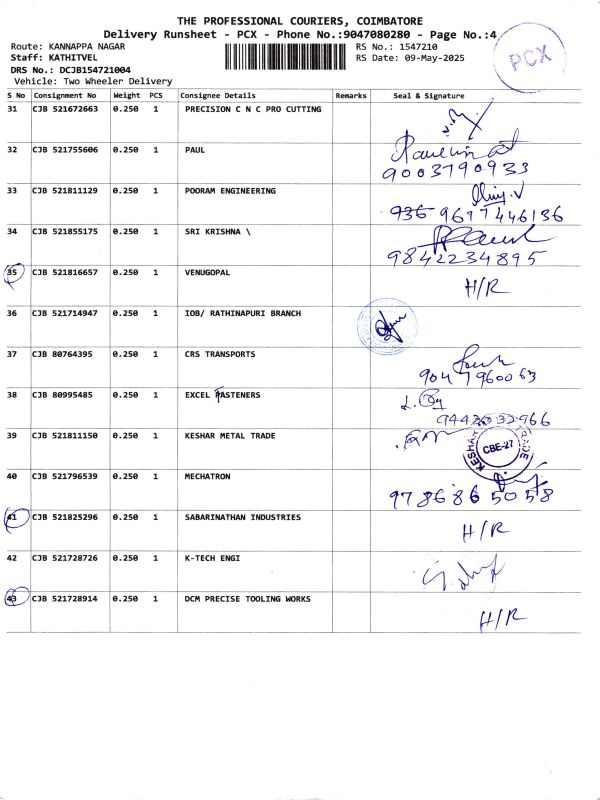 THE PROFESSIONAL COURIERS, COIMBATORE
Delivery Runsheet - PCX - Phone No.:9047080280 - Page No.:4
Route: KANNAPPA NAGAR RS No.: 1547210
Staff: KATHITVEL RS Date: 09-May-2025
DRS No.: DCJB154721004
Vehicle: Two Wheeler Delivery
PCX
S No Consignment No Weight PCS Consignee Details Remarks Seal & Signature
31 CJB 521672663 0.250 1 PRECISION C N C PRO CUTTING
32 CJB 521755606 0.250 1 PAUL
9003790933
33 CJB 521811129 0.250 1 POORAM ENGINEERING
936 9677446136
34 CJB 521855175 0.250 1 SRI KRISHNA \
9842234895
35 CJB 521816657 0.250 1 VENUGOPAL H/R
36 CJB 521714947 0.250 1 IOB/ RATHINAPURI BRANCH
37 CJB 80764395 0.250 1 CRS TRANSPORTS
9047960063
38 CJB 80995485 0.250 1 EXCEL FASTENERS
39 CJB 521811150 0.250 1 KESHAR METAL TRADE
CBE-27
40 CJB 521796539 0.250 1 MECHATRON
9786865058
41 CJB 521825296 0.250 1 SABARINATHAN INDUSTRIES H/R
42 CJB 521728726 0.250 1 K-TECH ENGI
43 CJB 521728914 0.250 1 DCM PRECISE TOOLING WORKS H/R